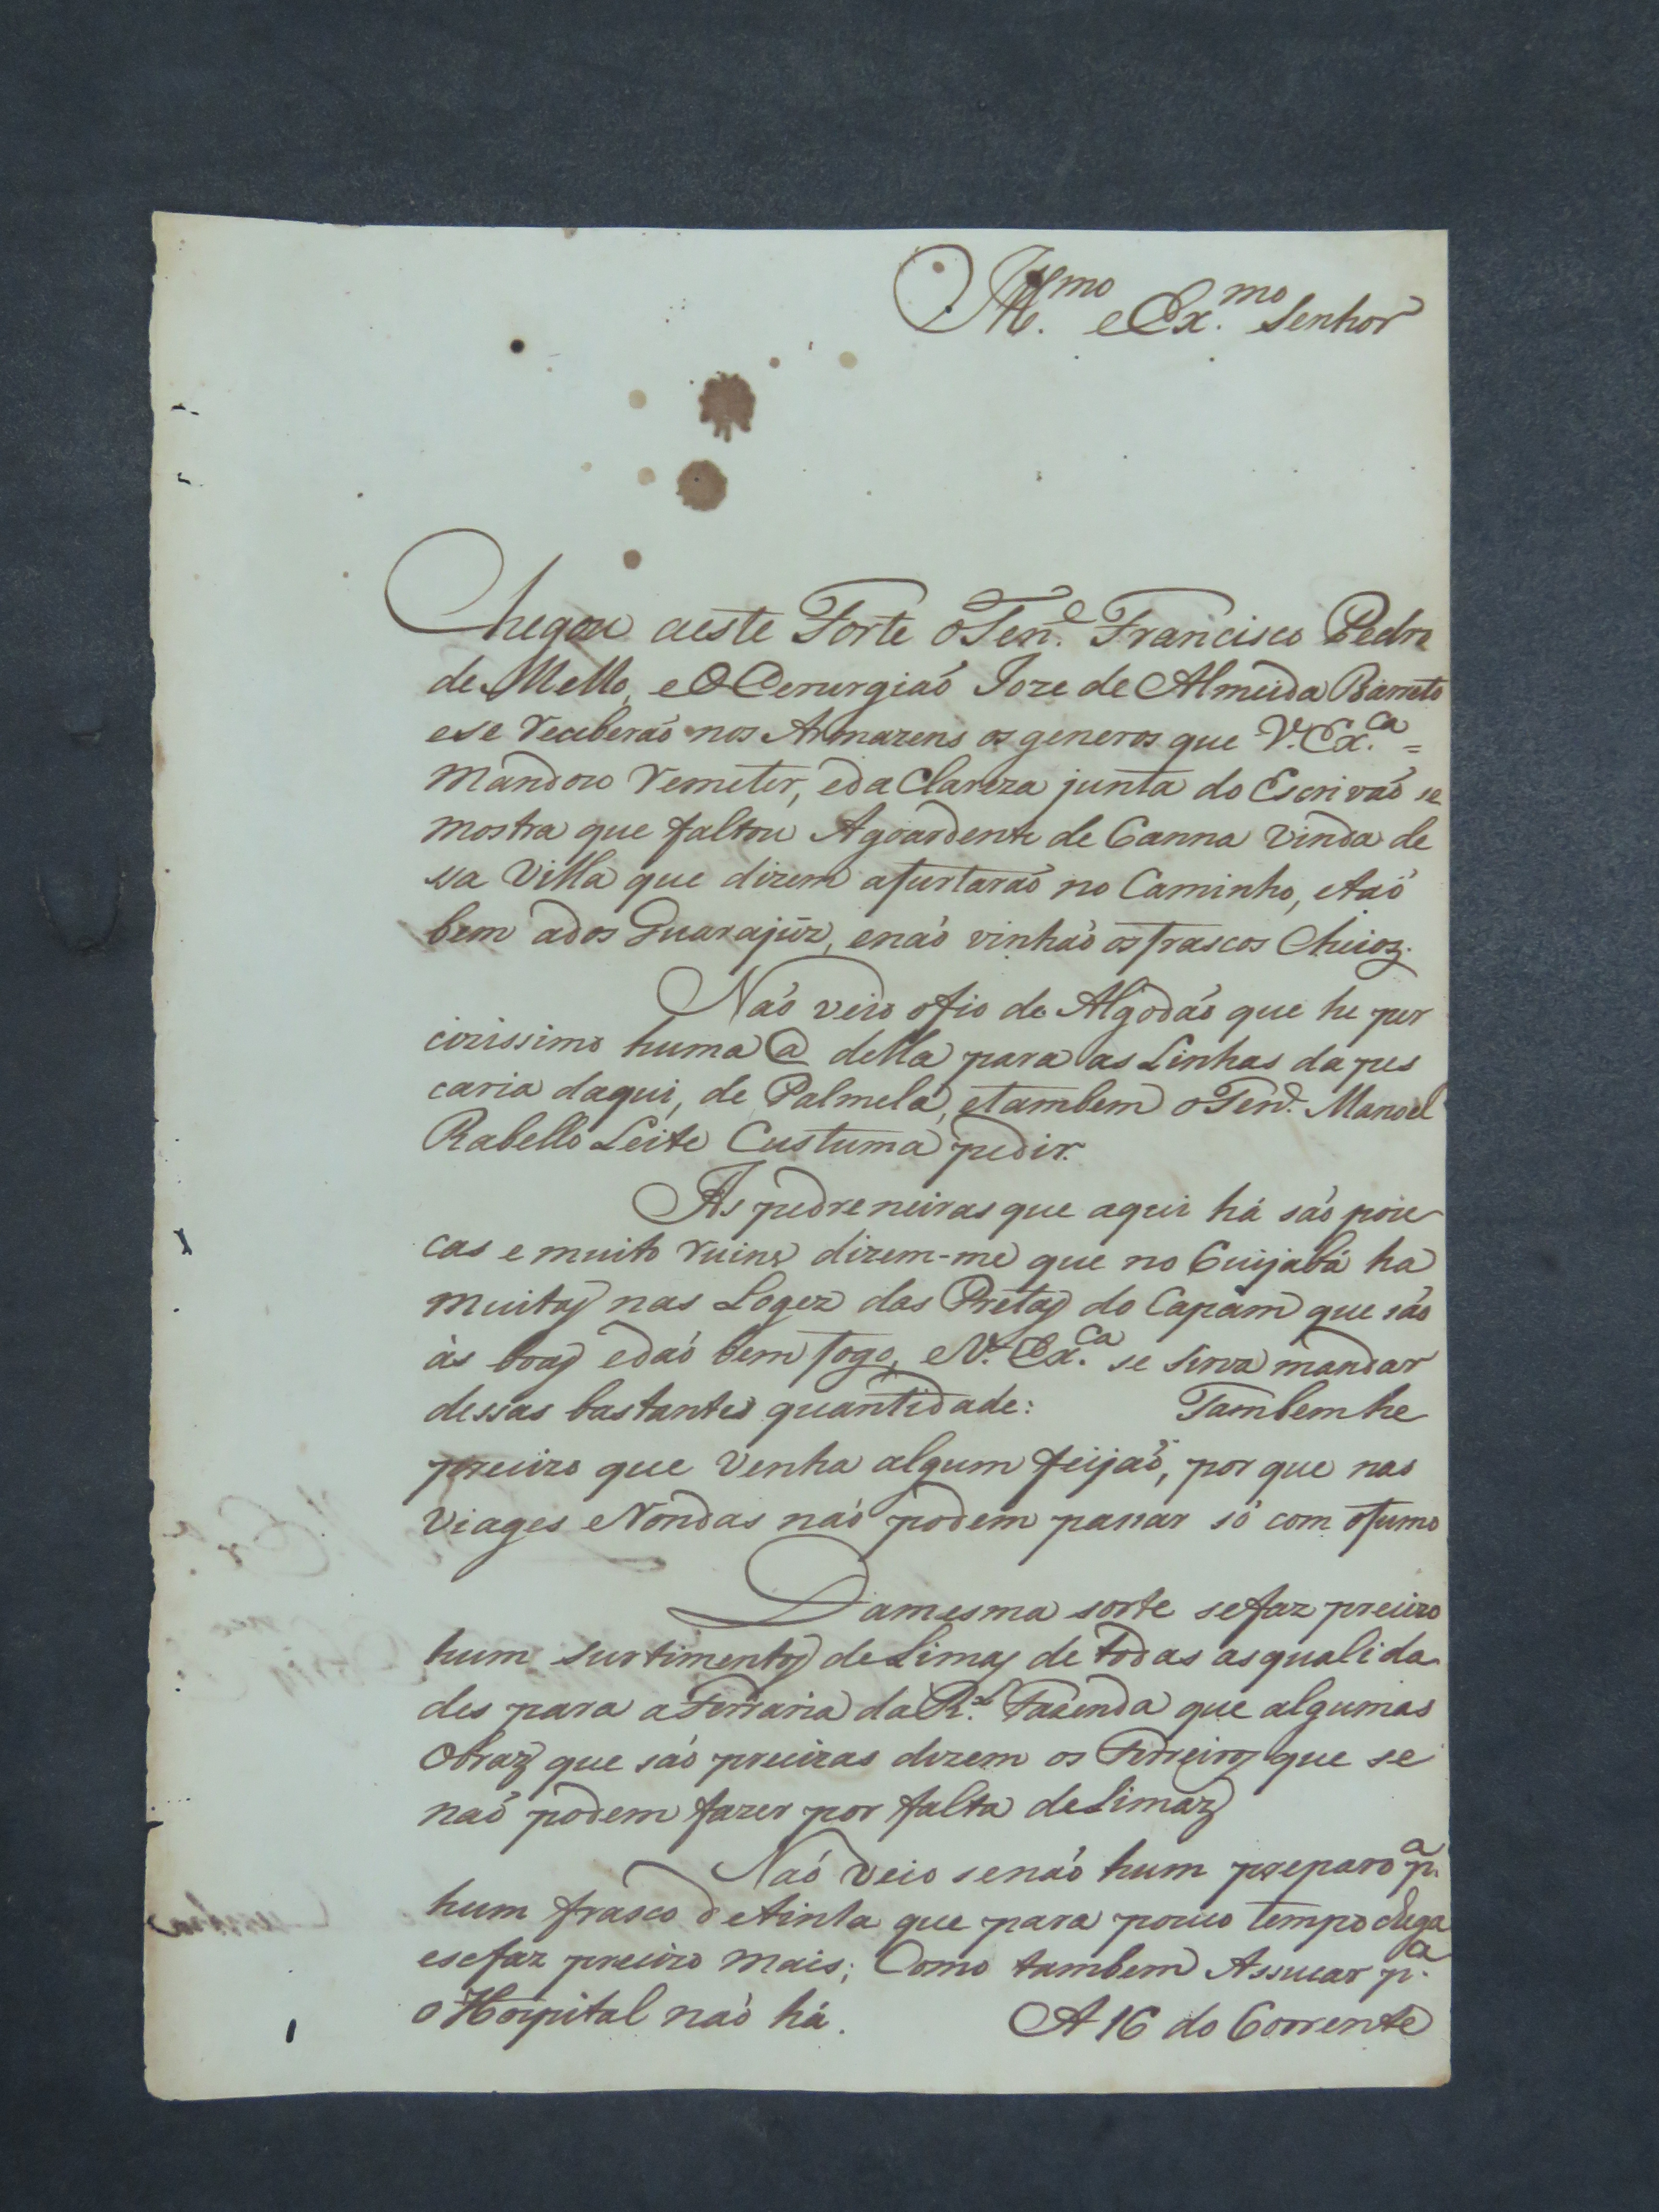 Ill.mo e Ex.mo Senhor
Chegou aeste Forte o Ten.e Francisco Pedro
de Mello, e O Cerurgiaõ Joze de Almeida Barreto
ese receberaõ nos Armazens os generos que V. Ex.ca =
Mandou remeter, eda Clareza junta do Escrivaõ se
mostra que faltou Agoardente de Canna vinda de
ssa Villa que dizem afurtaraõ no Caminho, etaõ
bem ados Guarajúz, enaõ vinhaõ osfrascos Cheioz.
Naõ veio ofio de Algodaõ que he per
cizissimo huma @ della para as Linhas da pes
caria daqui, de Palmela, etambem o Ten.e Manoel
Rabello Leite Custuma pedir.
As pedreneiras que aqui há saõ pou
cas e muito ruins dizem-me que no Cuijabá ha
muitas nas Logez das Pretas do Capam que saõ
ás boas edaõ bem fogo, e V. Ex.ca se sirva mandar
dessas bastantes quantidade: Tambem he
precizo que venha algum feijaõ, por que nas
viages e Rondas naõ podem passar só com ofumo
Damesma sorte sefaz precizo
hum surtimentos de Limas de todas asqualida
des para a Ferraria da R.l Fazenda que algumas
Obraz que saõ precizas dizem os Ferreiros que se
naõ podem fazer por falta de Limaz
Naõ veio senaõ hum preparo p.a
hum frasco detinta que para pouco tempo chega
esefaz precizo mais; Como tambem Assucar p.a
o Hospital naõ há. A 16 do Corrente